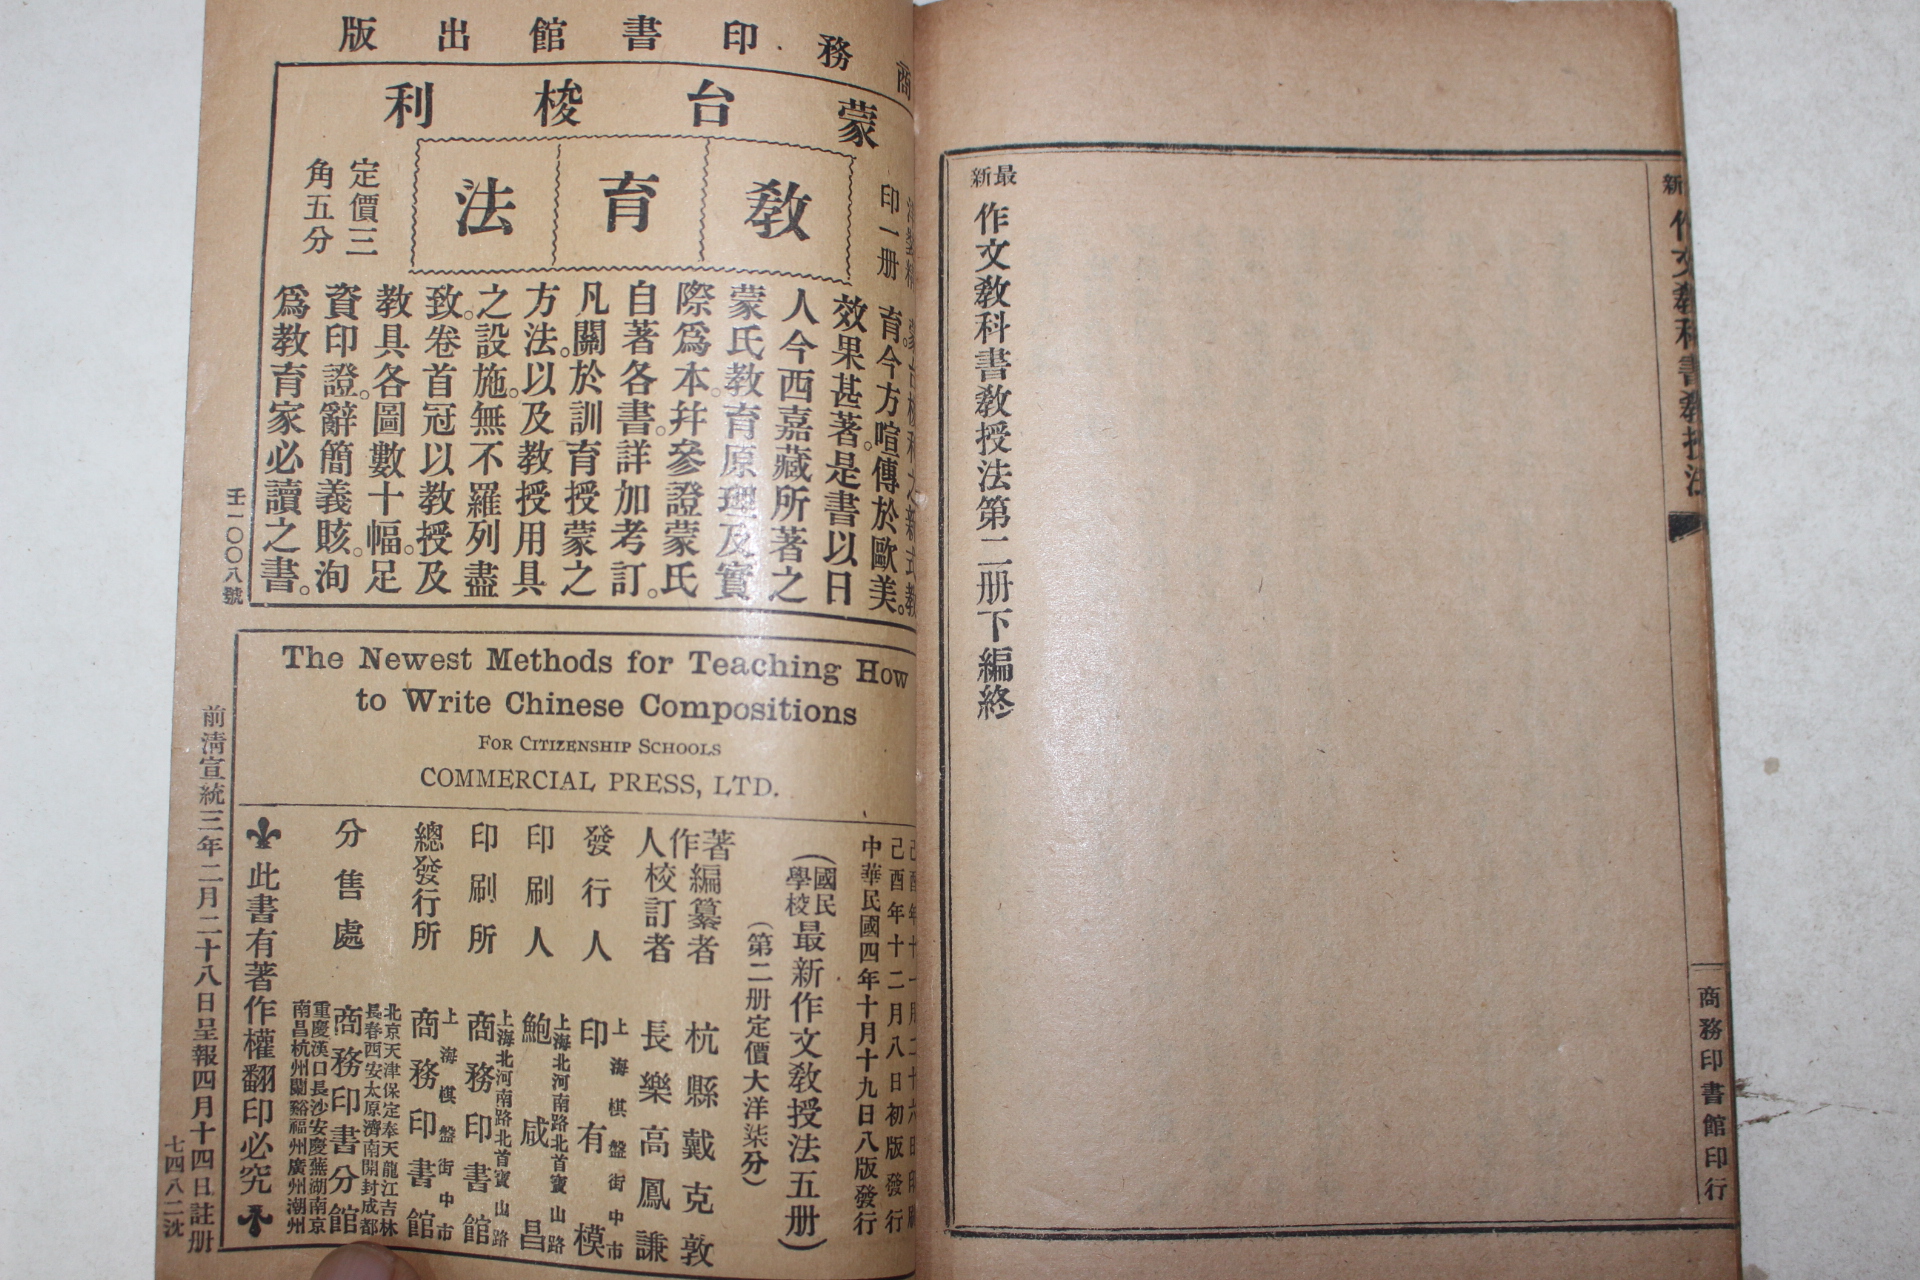 最新
作文敎科書敎授法第二册下編終
新
作文敎科書敎授法
商務印書館印行
商務印書館出版
蒙台梭利
敎育法
定價三
角五分
印一册
蒙台梭利之新式敎
育。今方喧傳於歐美。
效果甚著。是書以日
人今西嘉藏所著之
蒙氏敎育原理及實
際爲本。幷參證蒙氏
自著各書。詳加考訂。
凡關於訓育授蒙之
方法。以及敎授用具
之設施。無不羅列盡
致。卷首冠以敎授及
敎具各圖數十幅。足
資印證。辭簡義賅。洵
爲敎育家必讀之書。
壬一〇〇八號
The Newest Methods for Teaching How
to Write Chinese Compositions
FOR CITIZENSHIP SCHOOLS
COMMERCIAL PRESS, LTD.
己酉年十二月八日初版發行
中華民國四年十月十九日八版發行
(國民學校最新作文敎授法五册)
(第二册定價大洋柒分)
著作人
編纂者 杭縣戴克敦
校訂者 長樂高鳳謙
發行人 印有模
上海棋盤街中市
印刷人 鮑咸昌
上海北河南路北首寶山路
印刷所 商務印書館
上海北河南路北首寶山路
總發行所 商務印書館
上海棋盤街中市
分售處 商務印書分館
北京天津保定奉天龍江吉林
長春西安太原濟南開封成都
重慶漢口長沙安慶蕪湖南京
南昌杭州蘭谿福州廣州潮州
此書有著作權翻印必究
前淸宣統三年二月二十八日呈報四月十四日註册
七四八二沈